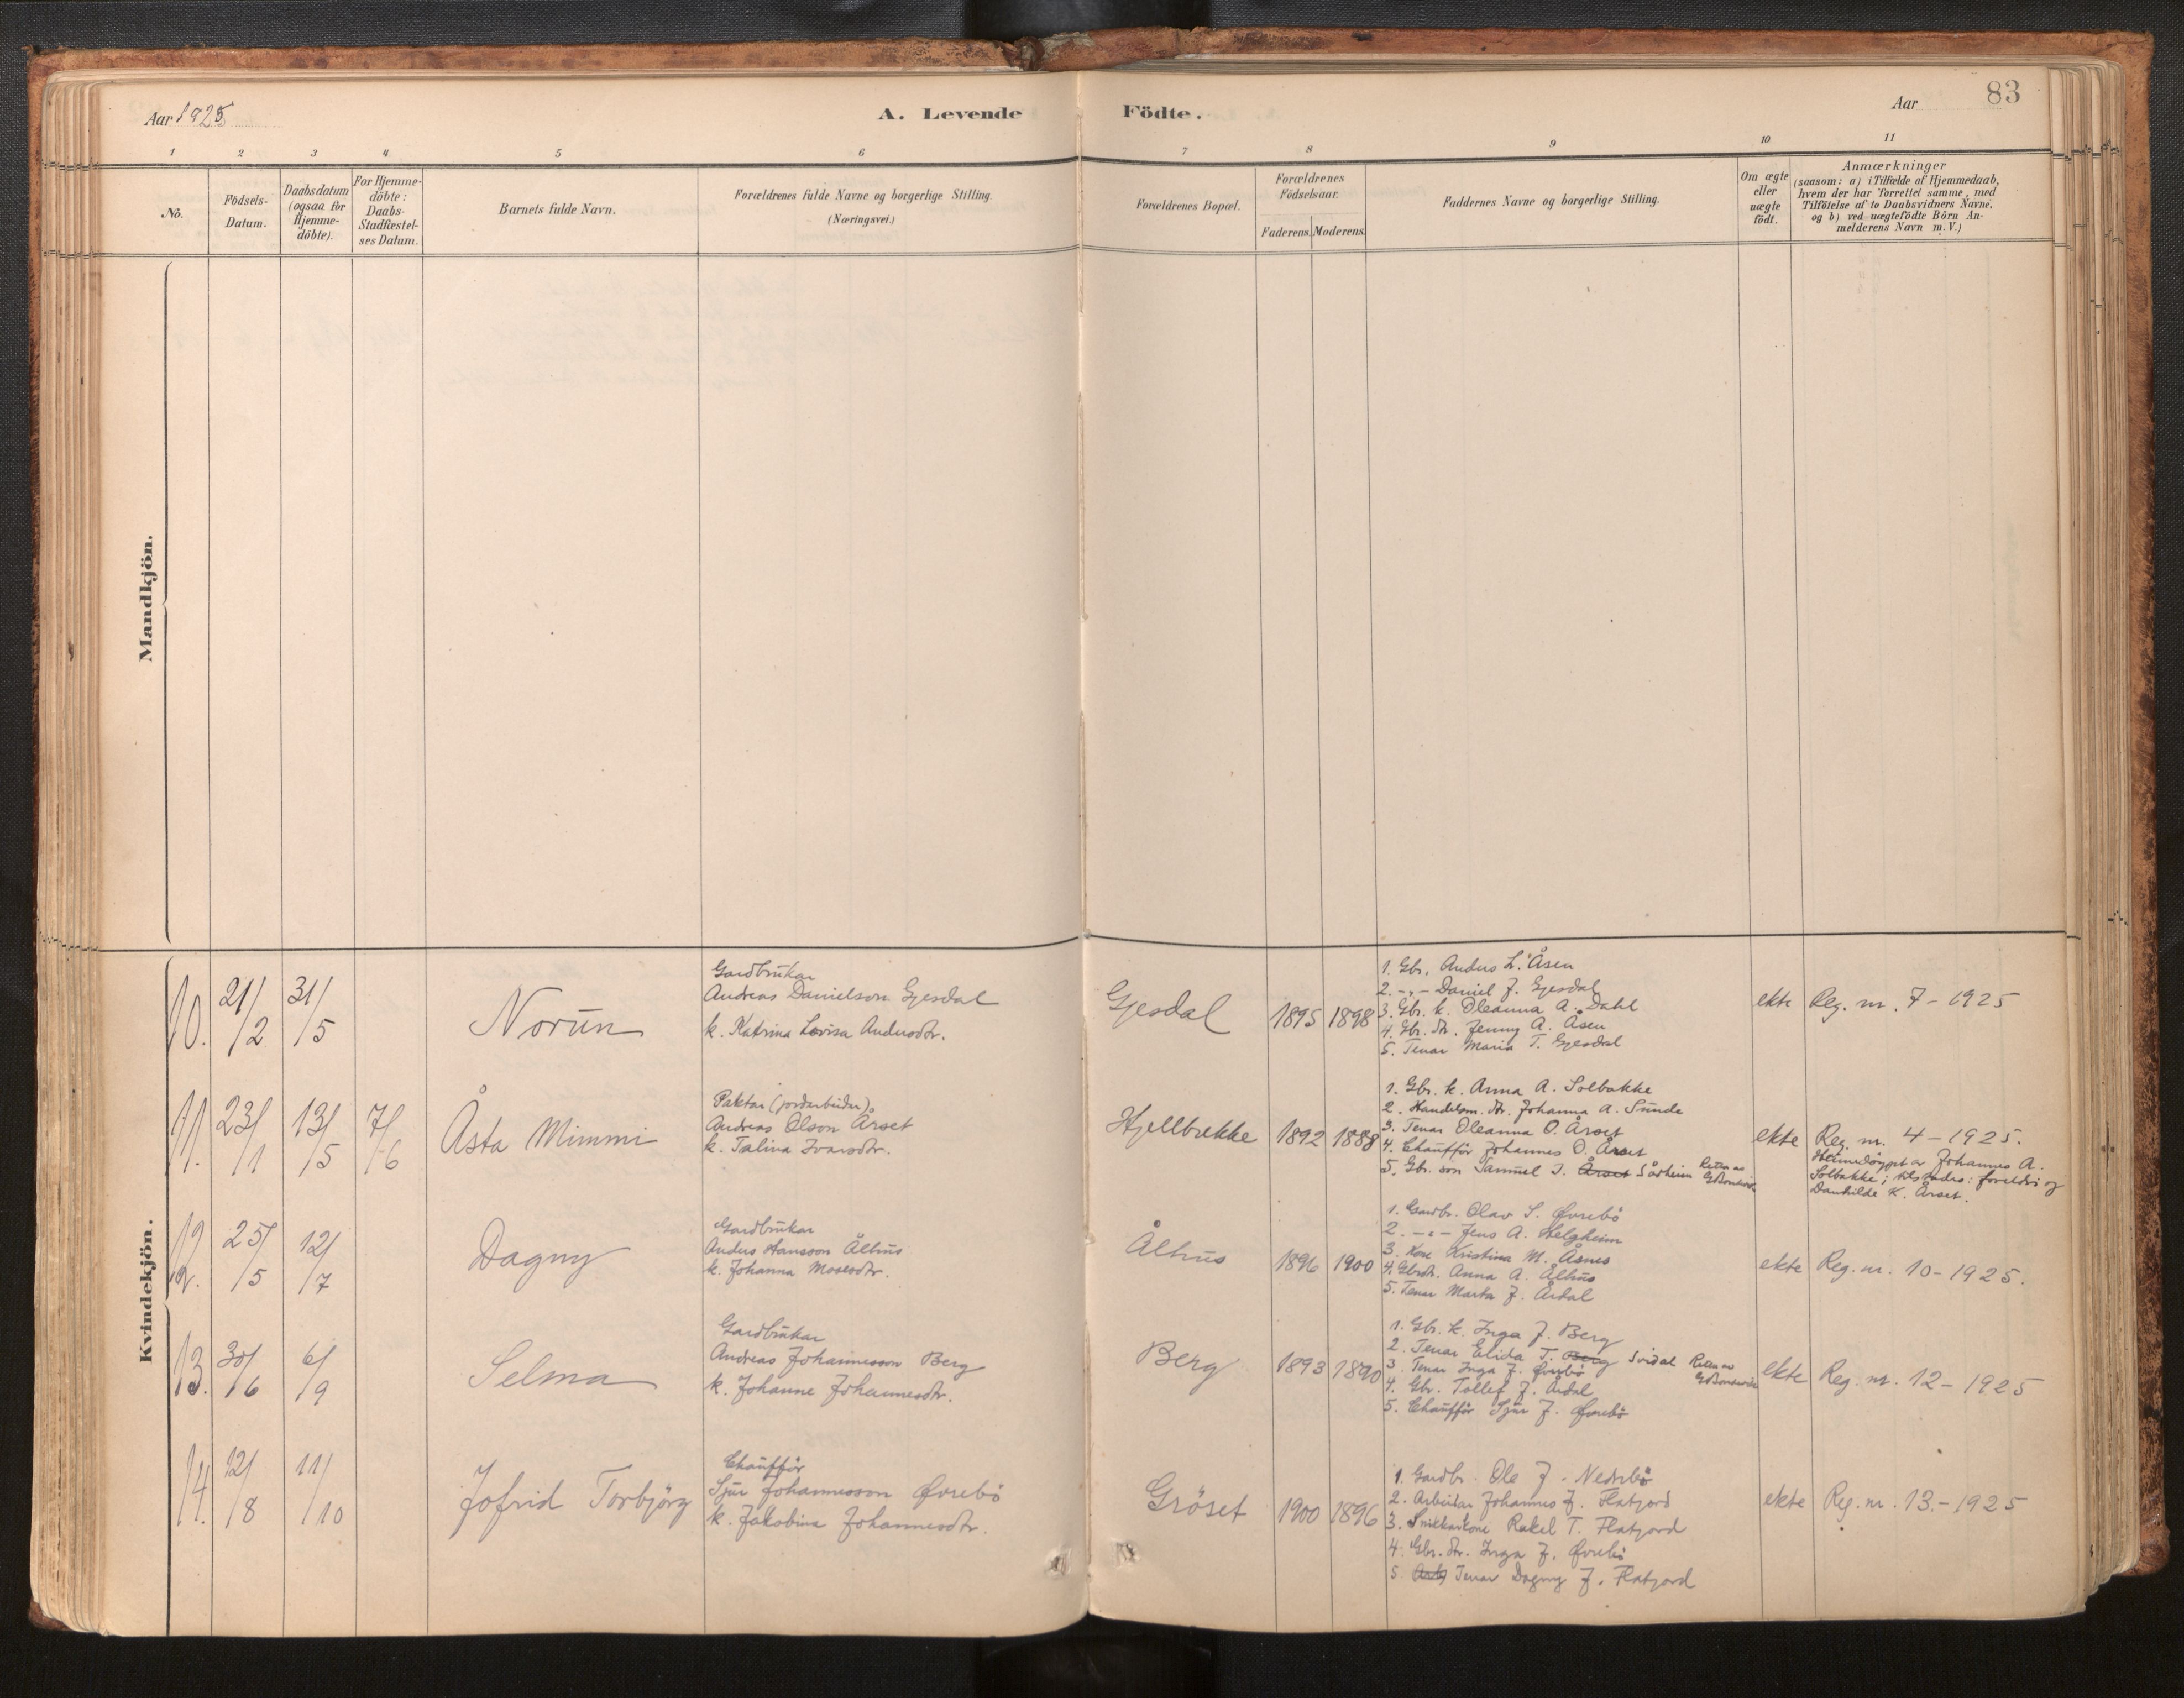 Aar 1925
A. Levende Födte.
Aar 83
1 2 3 4 5 6 7 8 9 10 11
No.
Födsels-
Datum.
Daabsdatum
(ogsaa for
Hjemme-
döbte).
For Hjemme-
döbte:
Daabs-
Stadfæstel-
ses Datum.
Barnets fulde Navn.
Forældrenes fulde Navne og borgerlige Stilling.
(Næringsvei.)
Forældrenes Bopæl.
Forældrenes
Födselsaar.
Faderens. Moderens.
Faddernes Navne og borgerlige Stilling.
Om ægte
eller
uægte
födt.
Anmærkninger
(saasom: a) i Tilfælde af Hjemmedaab,
hvem der har forrettet samme, med
Tilföielse af to Daabsvidners Navne,
og b) ved uægtefödte Börn An-
melderens Navn m. V.)
Mandkjön.
Kvindekjön.
10. 21/2 31/5
Norun
Gardbrukar
Andreas Danielson Gjesdal
k. Katrina Lovisa Andersdtr.
Gjesdal
1895 1898
1. Gbr. Anders L. Åsen
2. -"- Daniel J. Gjesdal
3. Gbr. k. Oleanna A. Dahl
4. Gbr. dtr. Jenny A. Åsen
5. Tenar Maria T. Gjesdal
ekte
Reg. nr. 7 - 1925
11. 23/1 13/5 7/6
Åsta Mimmi
Paktar (jordarbeidar)
Andreas Olson Årset
k. Talina Ivarsdtr.
Hjellbrekke
1892 1888
1. Gbr. k. Anna A. Solbakke
2. Handelsm. dtr. Johanna A. Sunde
3. Tenar Oleanna O. Årset
4. Chauffør Johannes O. Årset
5. Gbr. son Samuel I. Årset Sårheim Retta av
ekte
Reg. nr. 4 - 1925.
Heimedøypt av Johannes A.
Solbakke; tilstades: foreldri og
K. Årset.
12. 25/5 12/7
Dagny
Gardbrukar
Anders Hansson Ålhus
k. Johanna Mosesdtr.
Ålhus
1896 1900
1. Gardbr. Olav S. Øvrebö
2. -"- Jens A. Helgheim
3. Kone Kristina M. Åsnes
4. Gbrdtr. Anna A. Ålhus
5. Tenar Marta J. Årdal
ekte
Reg. nr. 10 - 1925.
13. 30/6 6/9
Selma
Gardbrukar
Andreas Johannesson Berg
k. Johanne Johannesdtr.
Berg
1893 1890
1. Gbr. k. Inga J. Berg
2. Tenar Elida T. Berg Svidal Retta av
3. Tenar Inga J. Øvrebö
4. Gbr. Tollef J. Årdal
5. Chauffør Sjur J. Øvrebö
ekte
Reg. nr. 12 - 1925
14. 12/8 11/10
Jofrid Torbjörg
Chauffør
Sjur Johannesson Øvrebö
k. Jakobina Johannesdtr.
Gröset
1900 1896
1. Gardbr. Ole J. Nedrebö
2. Arbeidar Johannes J. Flatjord
3. Snikkarkone Rakel T. Flatjord
4. Gbr. dtr. Inga J. Øvrebö
5. Arb. Tenar Dagny J. Flatjord
ekte
Reg. nr. 13 - 1925